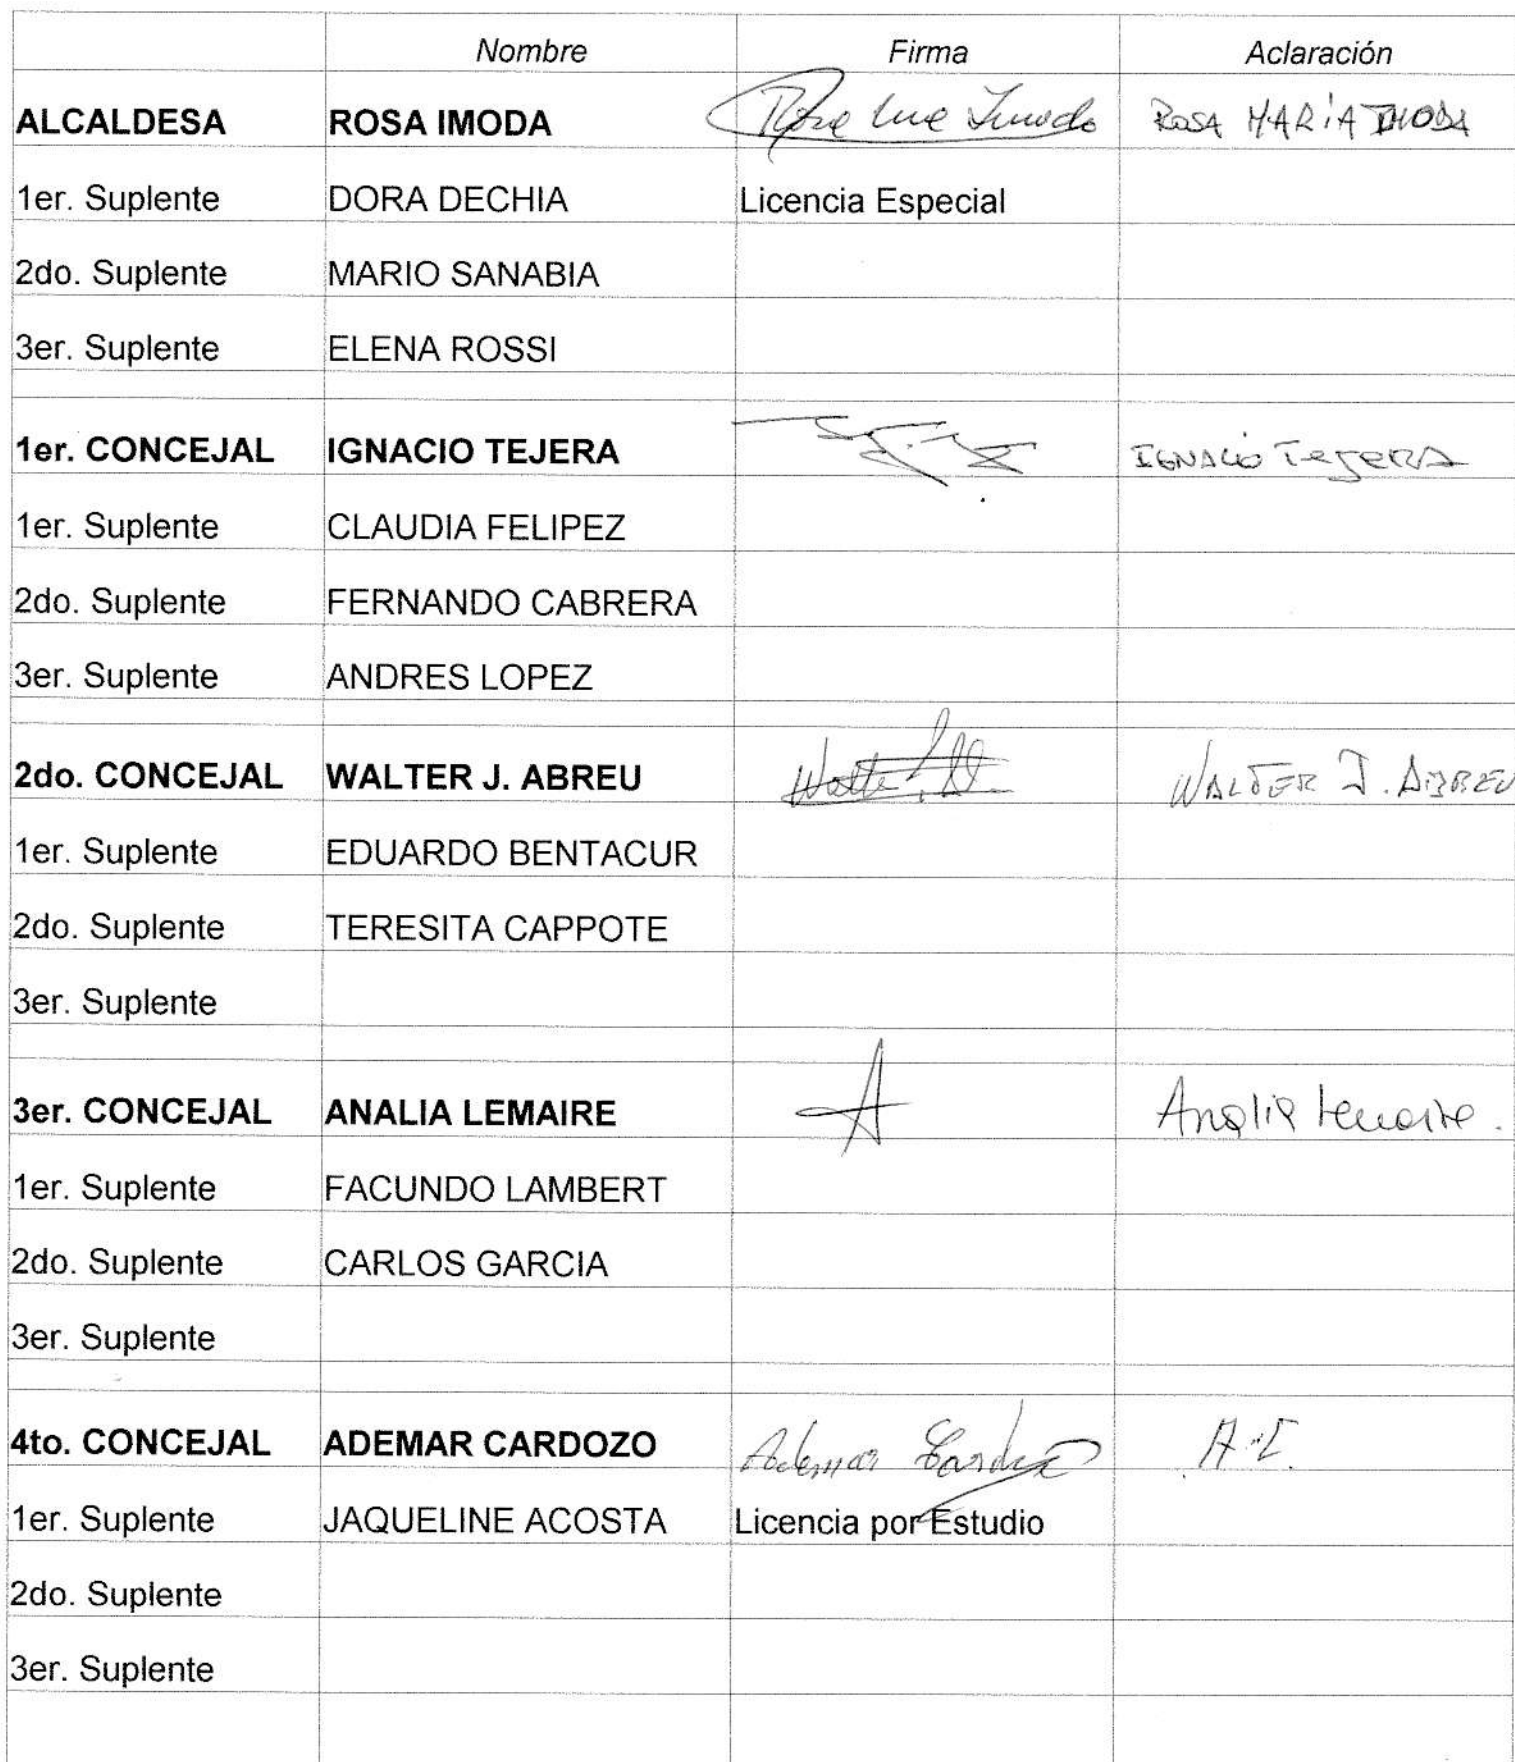 Nombre Firma Aclaración
ALCALDESA ROSA IMODA ROSA MARIA IMODA
1er. Suplente DORA DECHIA Licencia Especial
2do. Suplente MARIO SANABIA
3er. Suplente ELENA ROSSI
1er. CONCEJAL IGNACIO TEJERA IGNACIO TEJERA
1er. Suplente CLAUDIA FELIPEZ
2do. Suplente FERNANDO CABRERA
3er. Suplente ANDRES LOPEZ
2do. CONCEJAL WALTER J. ABREU WALTER J. ABREU
1er. Suplente EDUARDO BENTACUR
2do. Suplente TERESITA CAPPOTE
3er. Suplente
3er. CONCEJAL ANALIA LEMAIRE A Analia Lemaire.
1er. Suplente FACUNDO LAMBERT
2do. Suplente CARLOS GARCIA
3er. Suplente
4to. CONCEJAL ADEMAR CARDOZO Ademar Cardozo A.C.
1er. Suplente JAQUELINE ACOSTA Licencia por Estudio
2do. Suplente
3er. Suplente